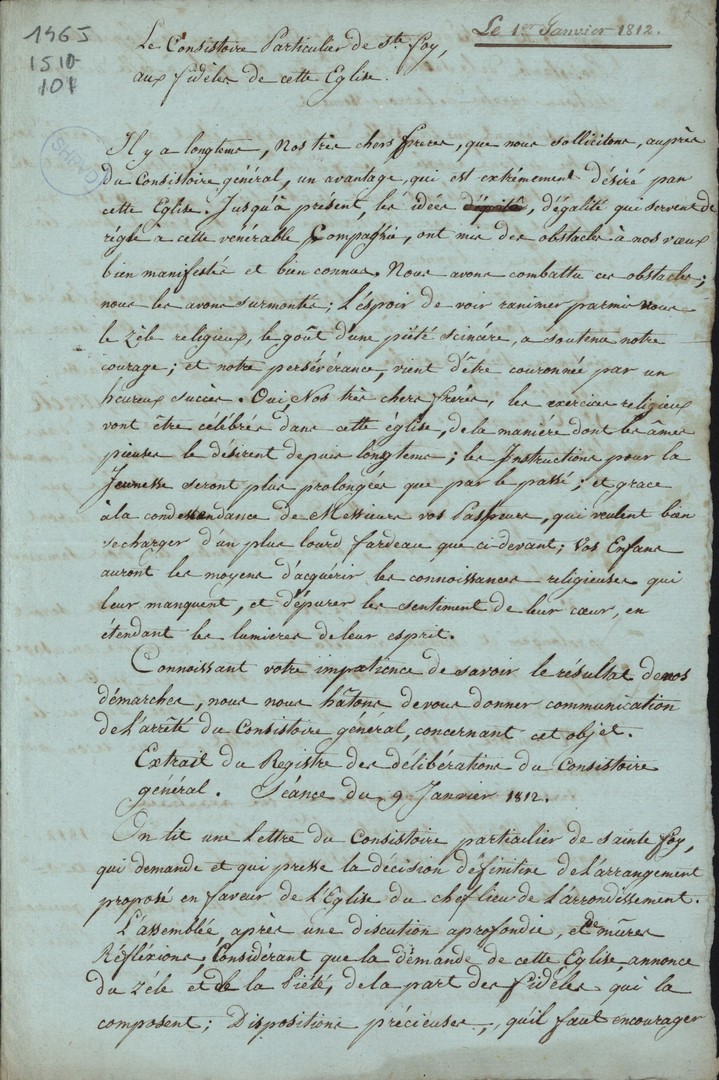 1465
1510
101
Le 1er Janvier 1812.
Le Consistoire Particulier de Ste Foy,
aux fidèles de cette Eglise.
SHPVD
Il y a longtems, Nos très chers frères, que nous sollicitons, auprès
du Consistoire général, un avantage, qui est extrémement désiré par
cette Eglise. Jusqu'à présent, les idées d'égalité qui servent de
règle à cette vénérable Compagnie, ont mis des obstacles à nos vœux
bien manifestés et bien connus. Nous avons combattu ces obstacles;
nous les avons surmontés; l'espoir de voir ranimer parmi nous
le zèle religieux, le goût d'une piété scincére, a soutenu notre
courage; et notre persévérance, vient d'être couronnée par un
heureux succès. Oui, Nos très chers frères, les exercices religieux
vont être célébrés dans cette église, de la manière dont les âmes
pieuses le désirent depuis longtems; les Instructions pour la
Jeunesse seront plus prolongées que par le passé; et grace
à la condessendance de Messieurs vos Pasteurs, qui veulent bien
se charger d'un plus lourd fardeau que ci-devant; Vos Enfans
auront les moyens d'acquérir les connoissances religieuses qui
leur manquent, et d'épurer les sentiment de leur cœur, en
étendant les lumieres de leur esprit.
Connoissant votre impatience de savoir le résultat de nos
démarches, nous nous hâtons de vous donner communication
de l'arrêté du Consistoire général, concernant cet objet.
Extrait du Registre des délibérations du Consistoire
général. Séance du 9 Janvier 1812.
On lit une Lettre du Consistoire particulier de Sainte Foy,
qui demande et qui presse la décision définitive de l'arrangement
proposé en faveur de l'Eglise du chef lieu de l'arrondissement.
L'assemblée après une discution aprofondie, et de mûres
Réfléxions, Considérant que la demande de cette Eglise, annonce
du zéle et de la Piété, de la part des fidèles qui la
composent; Dispositions précieuses, qu'il faut encourager